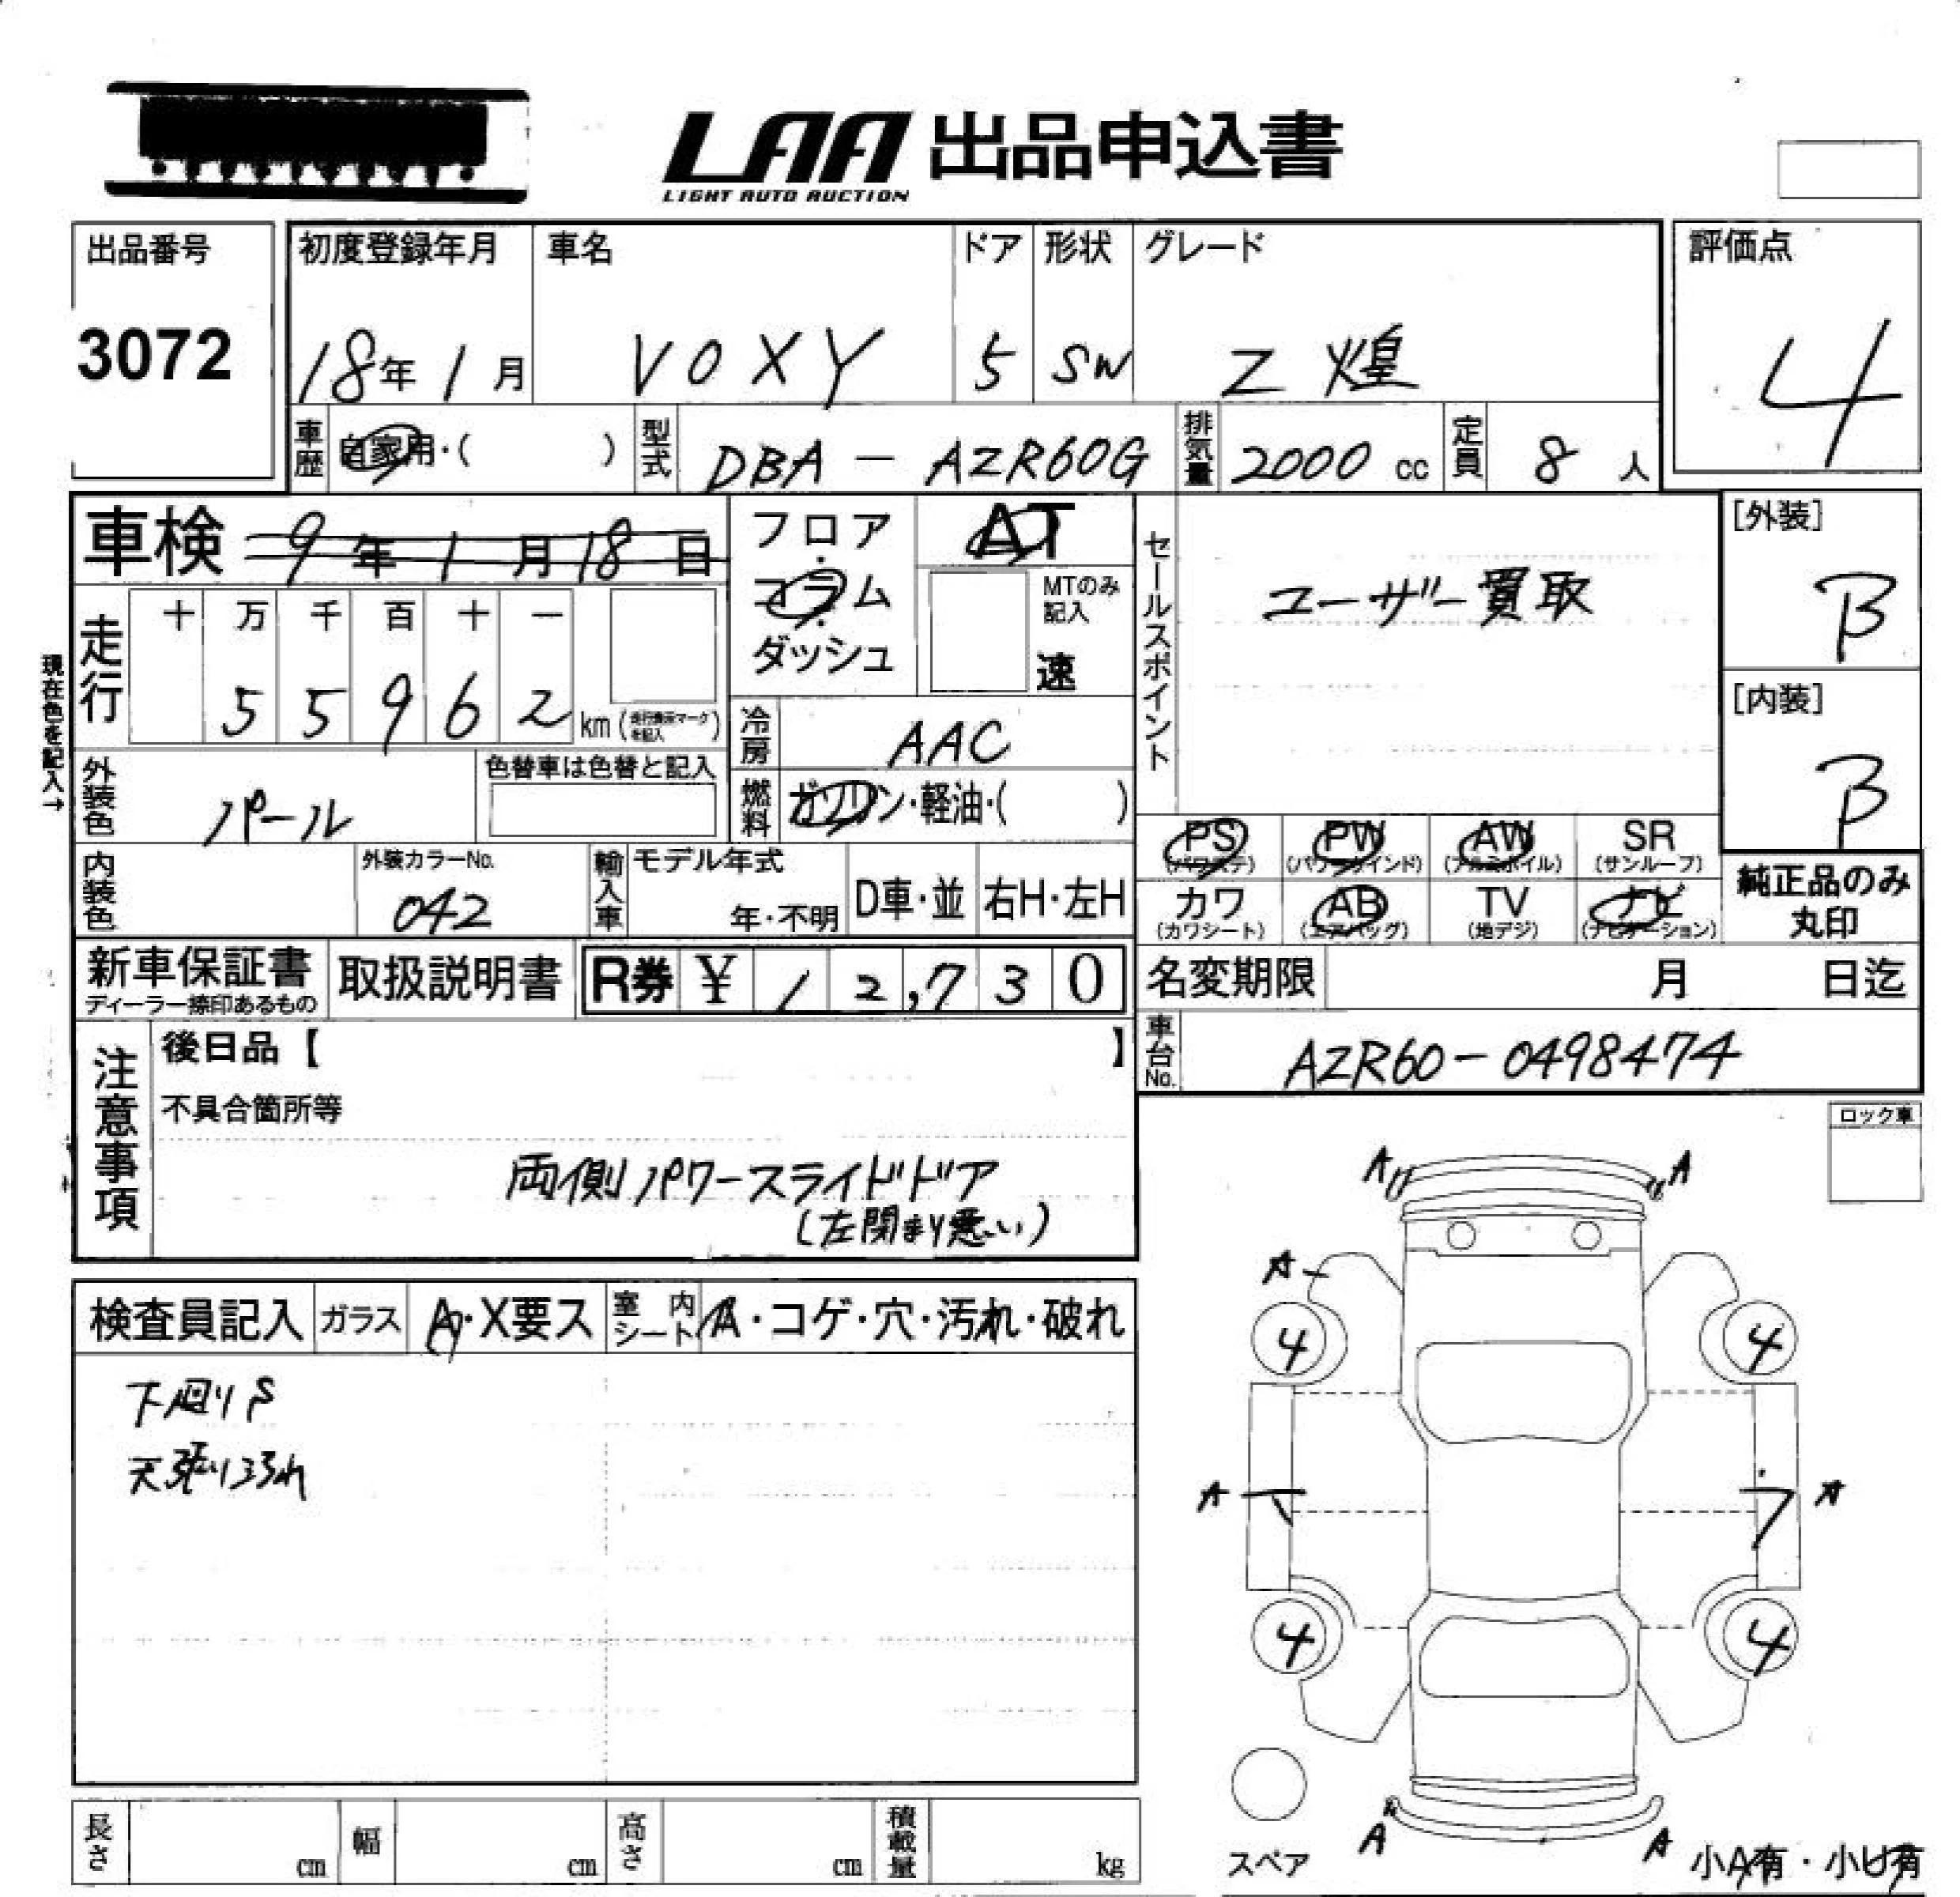 LAA 出品申込書
LIGHT AUTO AUCTION
出品番号
3072
初度登録年月
18年 1月
車名
VOXY
ドア
5
形状
SW
グレード
Z 煌
評価点
4
車歴
自家用・( )
型式
DBA - AZR60G
排気量
2000 cc
定員
8 人
車検 9年 1月 18日
フロア・コラム・ダッシュ
AT
MTのみ記入
速
セールスポイント
ユーザー買取
[外装]
B
[内装]
B
現在色を記入→
走行
十 万 千 百 十 一
5 5 9 6 2 km (走行表示マークを記入)
冷房
AAC
燃料
ガソリン・軽油・( )
外装色
パール
色替車は色替と記入
内装色
外装カラーNo.
042
輸入車
モデル年式
年・不明
D車・並
右H・左H
PS
(パワステ)
PW
(パワーウインド)
AW
(アルミホイル)
SR
(サンルーフ)
カワ
(カワシート)
AB
(エアバッグ)
TV
(地デジ)
ナビ
(ナビゲーション)
純正品のみ
丸印
新車保証書
ディーラー捺印あるもの
取扱説明書
R券 ¥ 12,730
名変期限 月 日迄
車台No.
AZR60-0498474
注意事項
後日品【 】
不具合箇所等
両側パワースライドドア
(左閉まり悪い)
ロック車
検査員記入
ガラス
A・X要ス
室内シート
A・コゲ・穴・汚れ・破れ
下廻りS
天張り汚れ
A A
A
4 4
A A
4 4
A A
スペア
小A有・小U有
長さ cm
幅 cm
高さ cm
積載量 kg